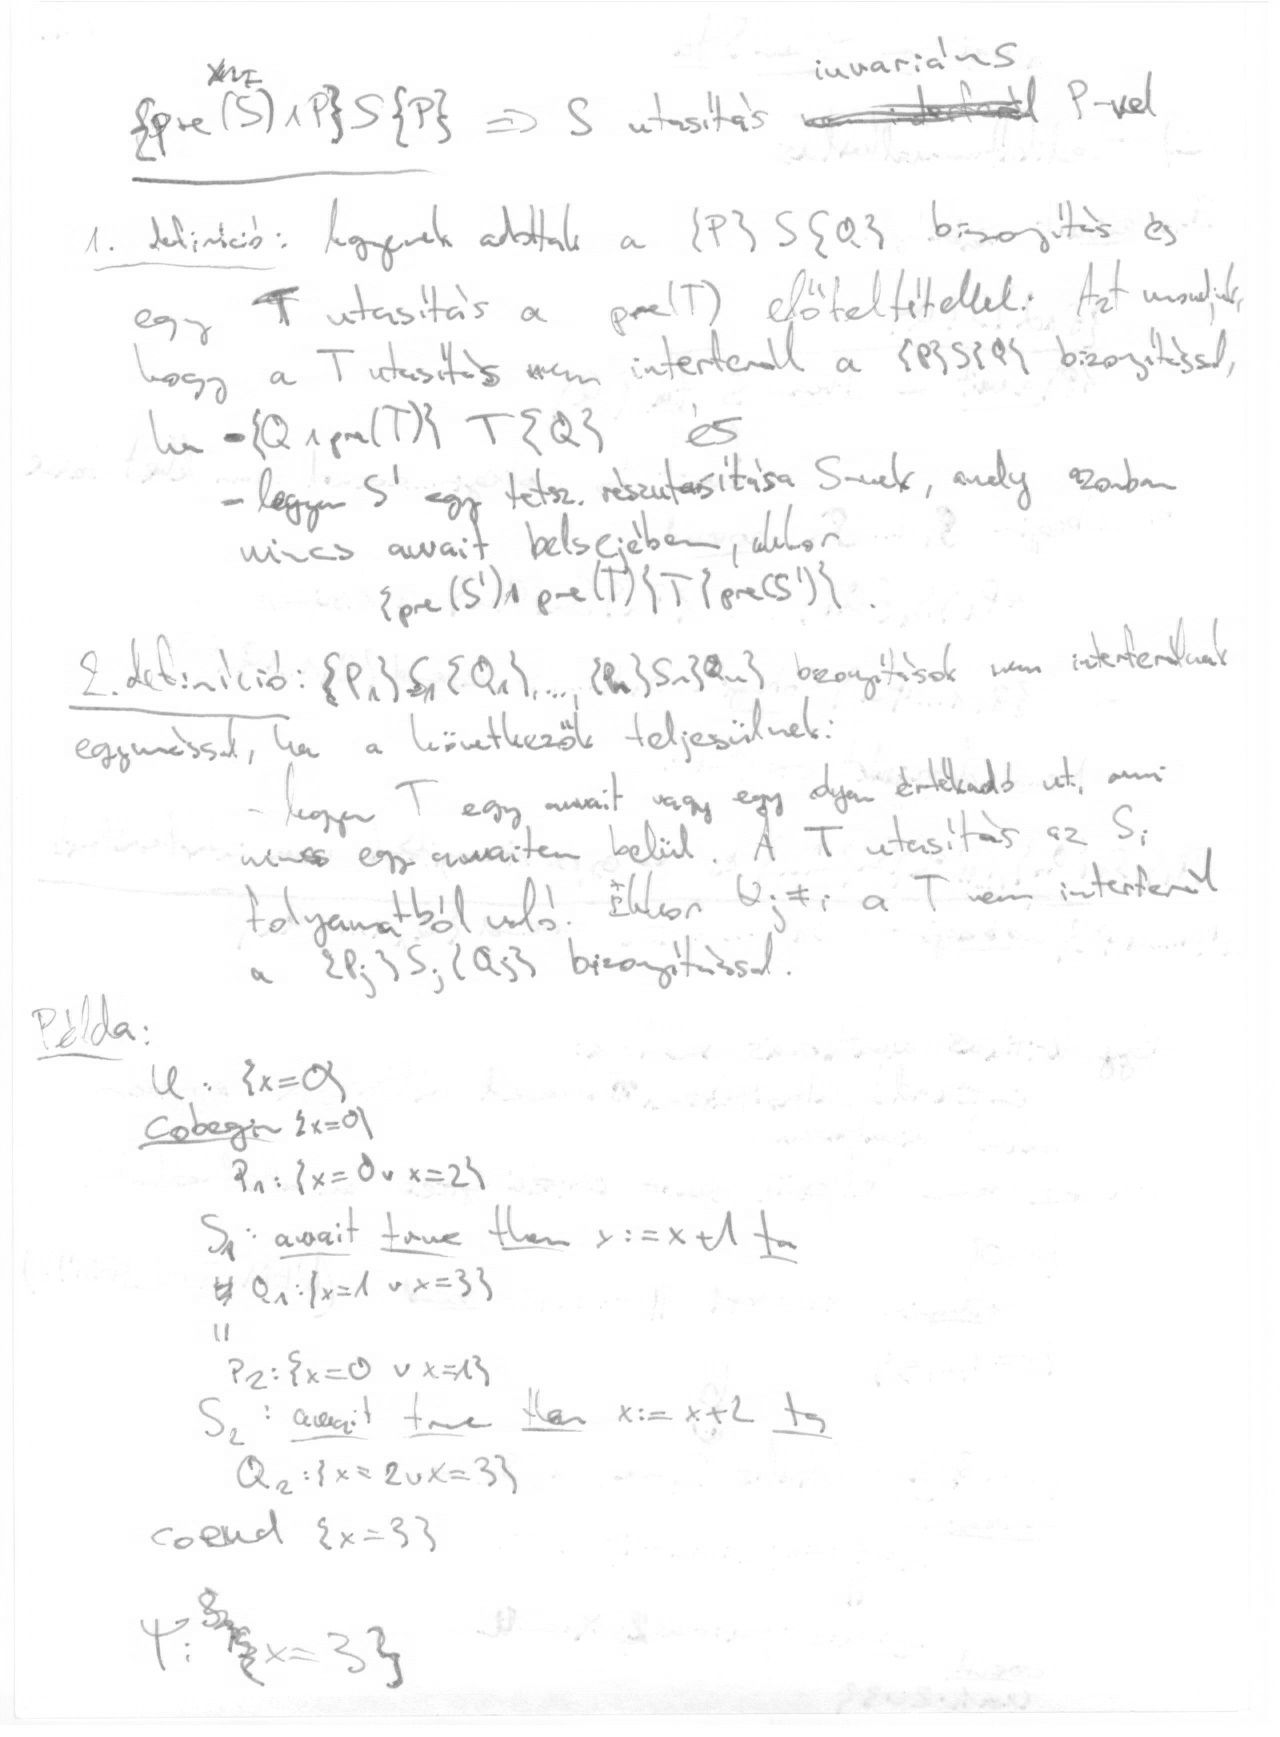 {pre(S)∧P}S{P} ⇒ S utasítás invariáns P-vel
1. definíció: legyenek adottak a {P}S{Q} bizonyítás és
egy T utasítás a pre(T) előfeltétellel. Azt mondjuk,
hogy a T utasítás nem interferál a {P}S{Q} bizonyítással,
ha -{Q∧pre(T)} T{Q} és
- legyen S' egy tetsz. részutasítása S-nek, amely azonban
nincs await belsejében, akkor
{pre(S')∧pre(T)}T{pre(S')}.
2. definíció: {P₁}S₁{Q₁},..., {Pₙ}Sₙ{Qₙ} bizonyítások nem interferálnak
egymással, ha a következők teljesülnek:
- legyen T egy await vagy egy olyan értékadó ut., ami
nincs egy awaiten belül. A T utasítás az Sᵢ
folyamatból való. Ekkor ∀j≠i a T nem interferál
a {Pⱼ}Sⱼ{Qⱼ} bizonyítással.
Példa:
φ: {x=0}
cobegin {x=0}
P₁: {x=0 ∨ x=2}
S₁: await true then x:=x+1 ta
Q₁: {x=1 ∨ x=3}
||
P₂: {x=0 ∨ x=1}
S₂: await true then x:=x+2 ta
Q₂: {x=2∨x=3}
coend {x=3}
Ψ: {x=3}